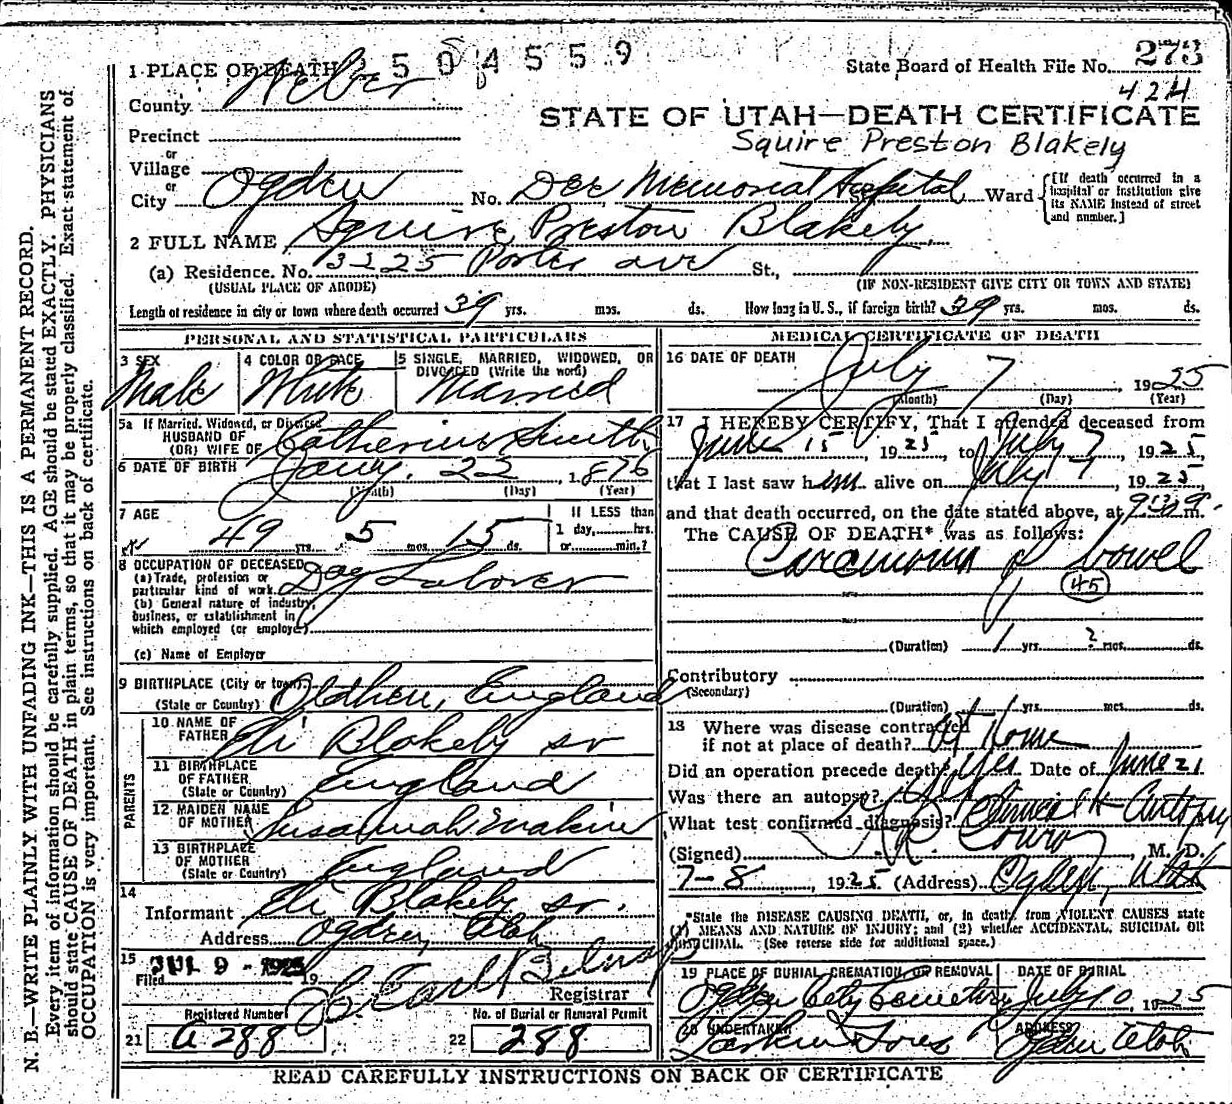 N. B.—WRITE PLAINLY WITH UNFADING INK—THIS IS A PERMANENT RECORD.
Every item of information should be carefully supplied. AGE should be stated EXACTLY. PHYSICIANS
should state CAUSE OF DEATH in plain terms, so that it may be properly classified. Exact statement of
OCCUPATION is very important. See instructions on back of certificate.
1 PLACE OF DEATH 2504559
State Board of Health File No. 273
424
County Weber
STATE OF UTAH—DEATH CERTIFICATE
Squire Preston Blakely
Precinct
or
Village
or
City Ogden No. Dee Memorial Hospital St. Ward
[If death occurred in a
hospital or institution give
its NAME instead of street
and number.]
2 FULL NAME Squire Preston Blakely
(a) Residence. No. 3225 Porter ave St.,
(USUAL PLACE OF ABODE) (IF NON-RESIDENT GIVE CITY OR TOWN AND STATE)
Length of residence in city or town where death occurred 39 yrs. mos. ds. How long in U. S., if foreign birth? 39 yrs. mos. ds.
PERSONAL AND STATISTICAL PARTICULARS
3 SEX 4 COLOR OR RACE 5 SINGLE, MARRIED, WIDOWED, OR
DIVORCED (Write the word)
Male White Married
5a If Married, Widowed, or Divorced
HUSBAND OF
(OR) WIFE OF Catherine Smith
6 DATE OF BIRTH Jany. 22 1876
(Month) (Day) (Year)
7 AGE IF LESS than
49 yrs. 5 mos. 15 ds. 1 day, hrs.
or min.?
8 OCCUPATION OF DECEASED
(a) Trade, profession or
particular kind of work Day Laborer
(b) General nature of industry,
business, or establishment in
which employed (or employer)
(c) Name of Employer
9 BIRTHPLACE (City or town)
(State or Country) England
PARENTS
10 NAME OF
FATHER Eli Blakely sr
11 BIRTHPLACE
OF FATHER
(State or Country) England
12 MAIDEN NAME
OF MOTHER Susannah
13 BIRTHPLACE
OF MOTHER
(State or Country) England
14
Informant Eli Blakely sr.
Address Ogden, Utah
15
Filed JUL 9 - 1925 19
Registrar
Registered Number No. of Burial or Removal Permit
21 a 288 22 288
MEDICAL CERTIFICATE OF DEATH
16 DATE OF DEATH
July 7 1925
(Month) (Day) (Year)
17 I HEREBY CERTIFY, That I attended deceased from
June 15, 1925 to July 7, 1925,
that I last saw him alive on July 7, 1925,
and that death occurred, on the date stated above, at m.
The CAUSE OF DEATH* was as follows:
Carcinoma of bowel
45
(Duration) 1 yrs. ? mos. ds.
Contributory
(Secondary)
(Duration) yrs. mos. ds.
18 Where was disease contracted
if not at place of death? At Home
Did an operation precede death? yes Date of June 21
Was there an autopsy?
What test confirmed diagnosis? Autopsy
(Signed) M. D.
7-8, 1925 (Address) Ogden, Utah
*State the DISEASE CAUSING DEATH, or, in death from VIOLENT CAUSES state
(1) MEANS AND NATURE OF INJURY; and (2) whether ACCIDENTAL, SUICIDAL OR
HOMICIDAL. (See reverse side for additional space.)
19 PLACE OF BURIAL, CREMATION, OR REMOVAL DATE OF BURIAL
Ogden City Cemetery July 10, 1925
20 UNDERTAKER ADDRESS
Larkin Sons Ogden Utah
READ CAREFULLY INSTRUCTIONS ON BACK OF CERTIFICATE